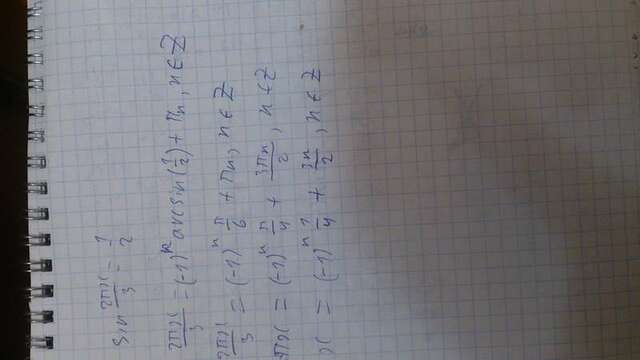 sin 2πx/3 = 1/2
2πx/3 = (-1)ⁿ arcsin(1/2) + πn, n ∈ Z
2πx/3 = (-1)ⁿ π/6 + πn, n ∈ Z
πx = (-1)ⁿ π/4 + 3πn/2, n ∈ Z
x = (-1)ⁿ 1/4 + 3n/2, n ∈ Z